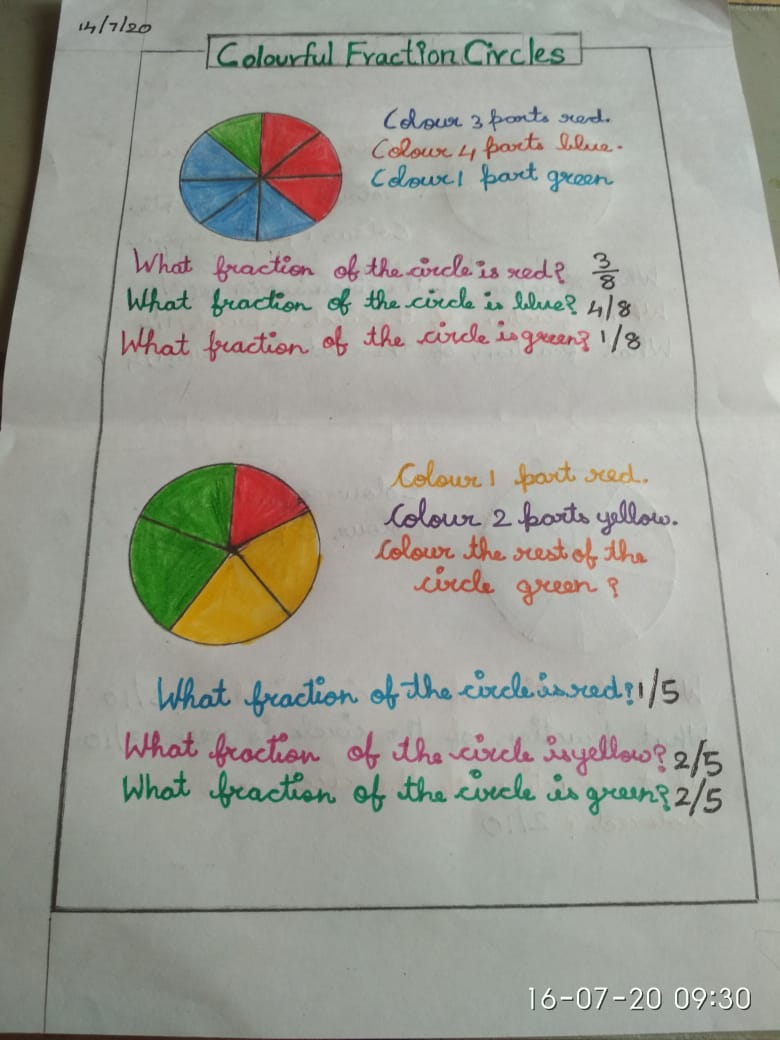 14/7/20
Colourful Fraction Circles
Colour 3 parts red.
Colour 4 parts blue.
Colour 1 part green
What fraction of the circle is red? 3/8
What fraction of the circle is blue? 4/8
What fraction of the circle is green? 1/8
Colour 1 part red.
Colour 2 parts yellow.
Colour the rest of the
circle green ?
What fraction of the circle is red? 1/5
What fraction of the circle is yellow? 2/5
What fraction of the circle is green? 2/5
16-07-20 09:30